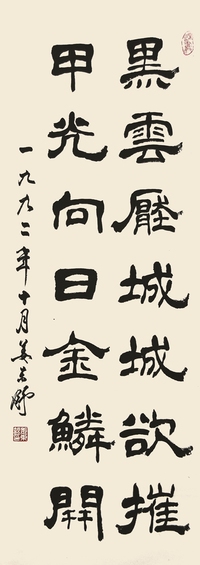 黑雲壓城城欲摧
甲光向日金鱗開
一九九二年十月